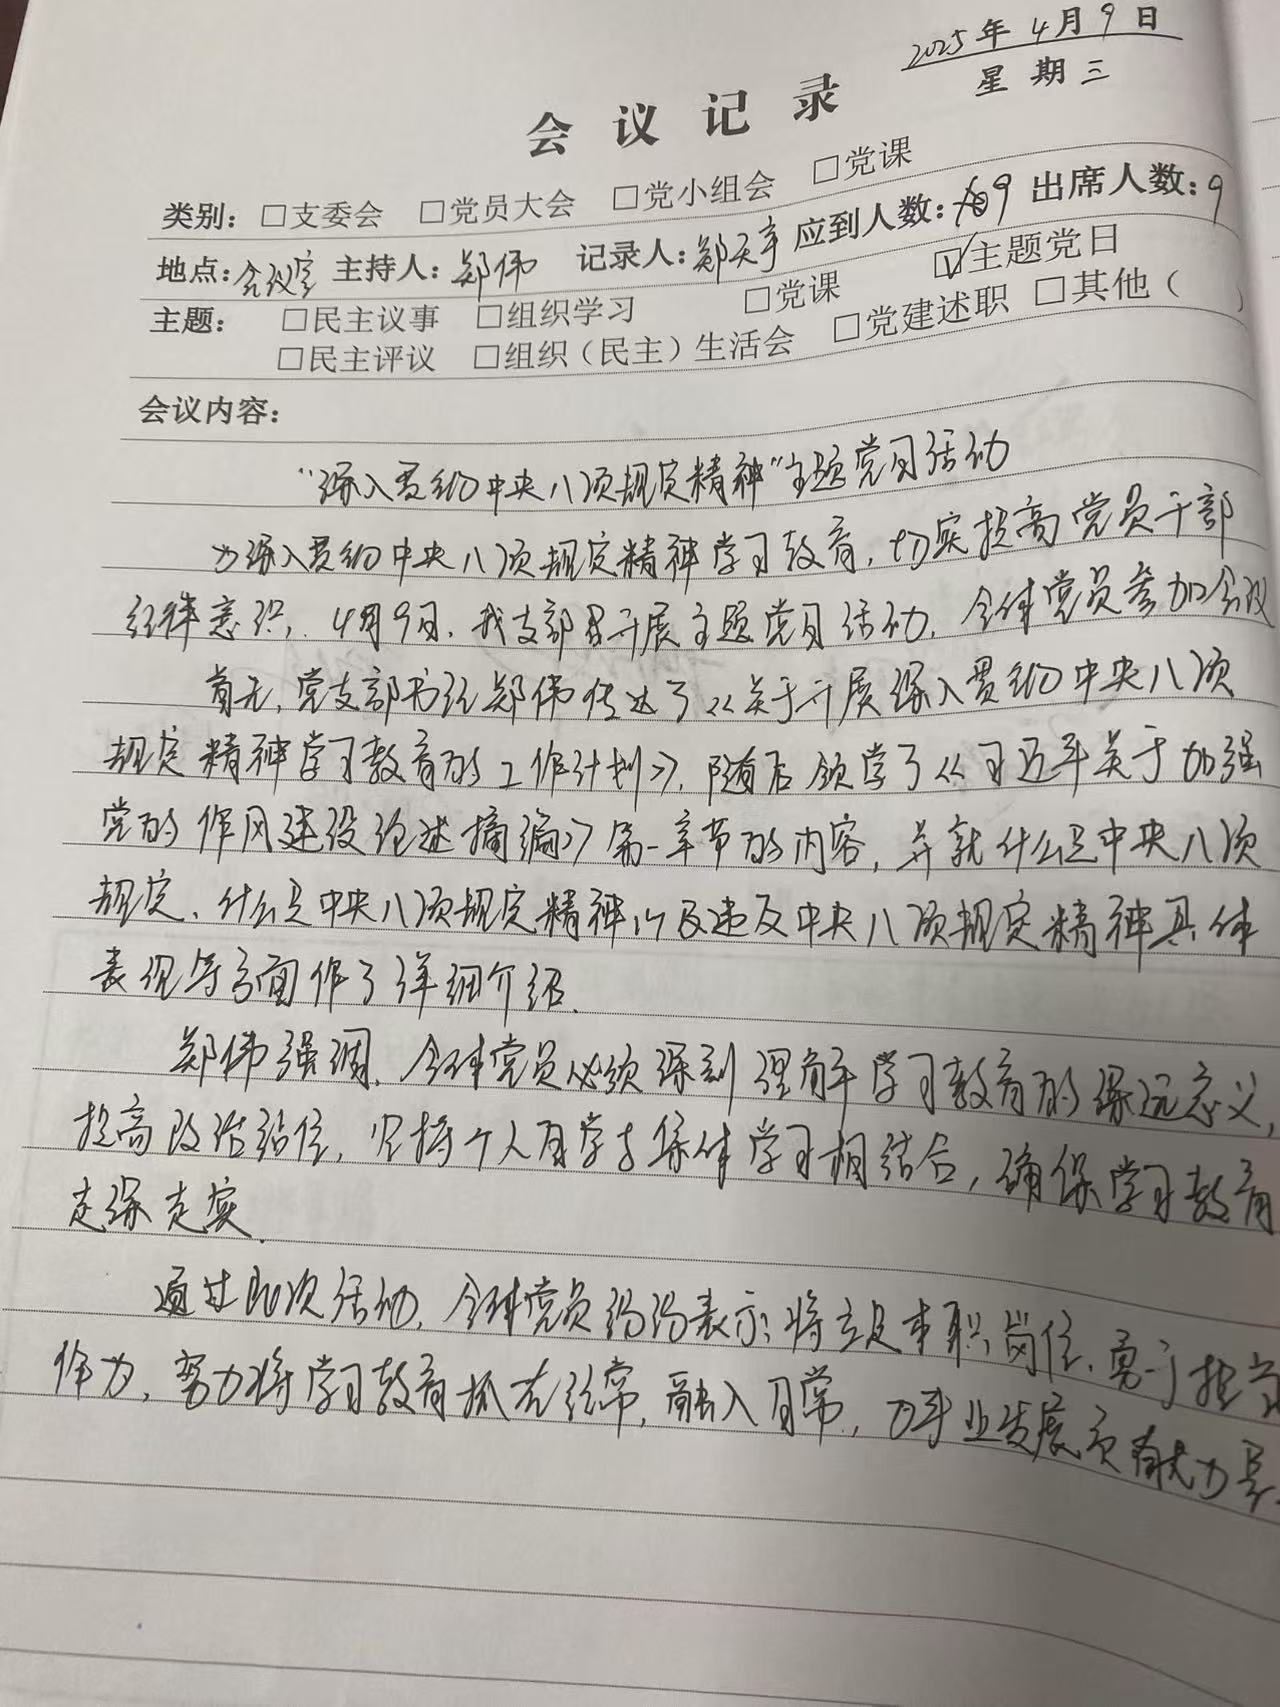 2025年4月9日
星期三
会议记录
类别：□支委会 □党员大会 □党小组会 □党课
地点：会议室 主持人：郑伟 记录人：郑天宇 应到人数：9 出席人数：9
主题： □民主议事 □组织学习 □党课 ☑主题党日
□民主评议 □组织（民主）生活会 □党建述职 □其他（ ）
会议内容：
“深入贯彻中央八项规定精神”主题党日活动
为深入贯彻中央八项规定精神学习教育，切实提高党员干部
纪律意识，4月9日，我支部召开展主题党日活动，全体党员参加会议
首先，党支部书记郑伟传达了《关于开展深入贯彻中央八项
规定精神学习教育的工作计划》，随后领学了《习近平关于加强
党的作风建设论述摘编》第一章节的内容，并就什么是中央八项
规定、什么是中央八项规定精神以及违反中央八项规定精神具体
表现等方面作了详细介绍。
郑伟强调，全体党员必须深刻理解学习教育的深远意义，
提高政治站位，坚持个人自学与集体学习相结合，确保学习教育
走深走实。
通过此次活动，全体党员纷纷表示：将立足本职岗位、勇于担当
作为，努力将学习教育抓在经常，融入日常，为事业发展贡献力量